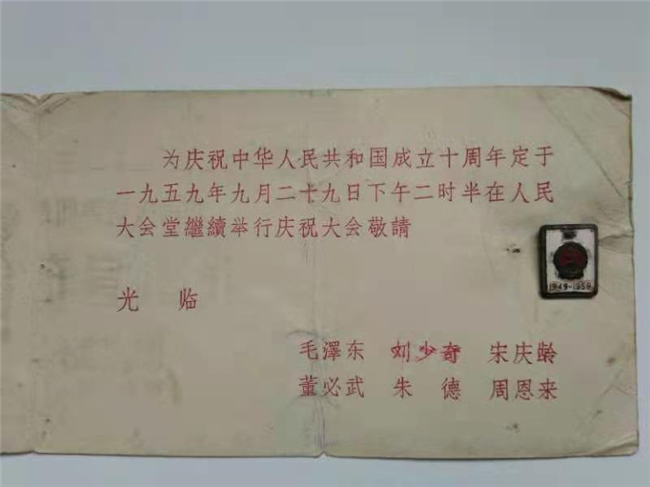 为庆祝中华人民共和国成立十周年定于
一九五九年九月二十九日下午二时半在人民
大会堂繼續举行庆祝大会敬請
光临
毛澤东 刘少奇 宋庆龄
董必武 朱德 周恩来
1949-1959